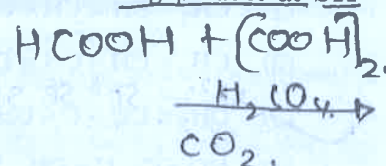 HCOOH + [COOH]2.
H2CO4.
CO2.